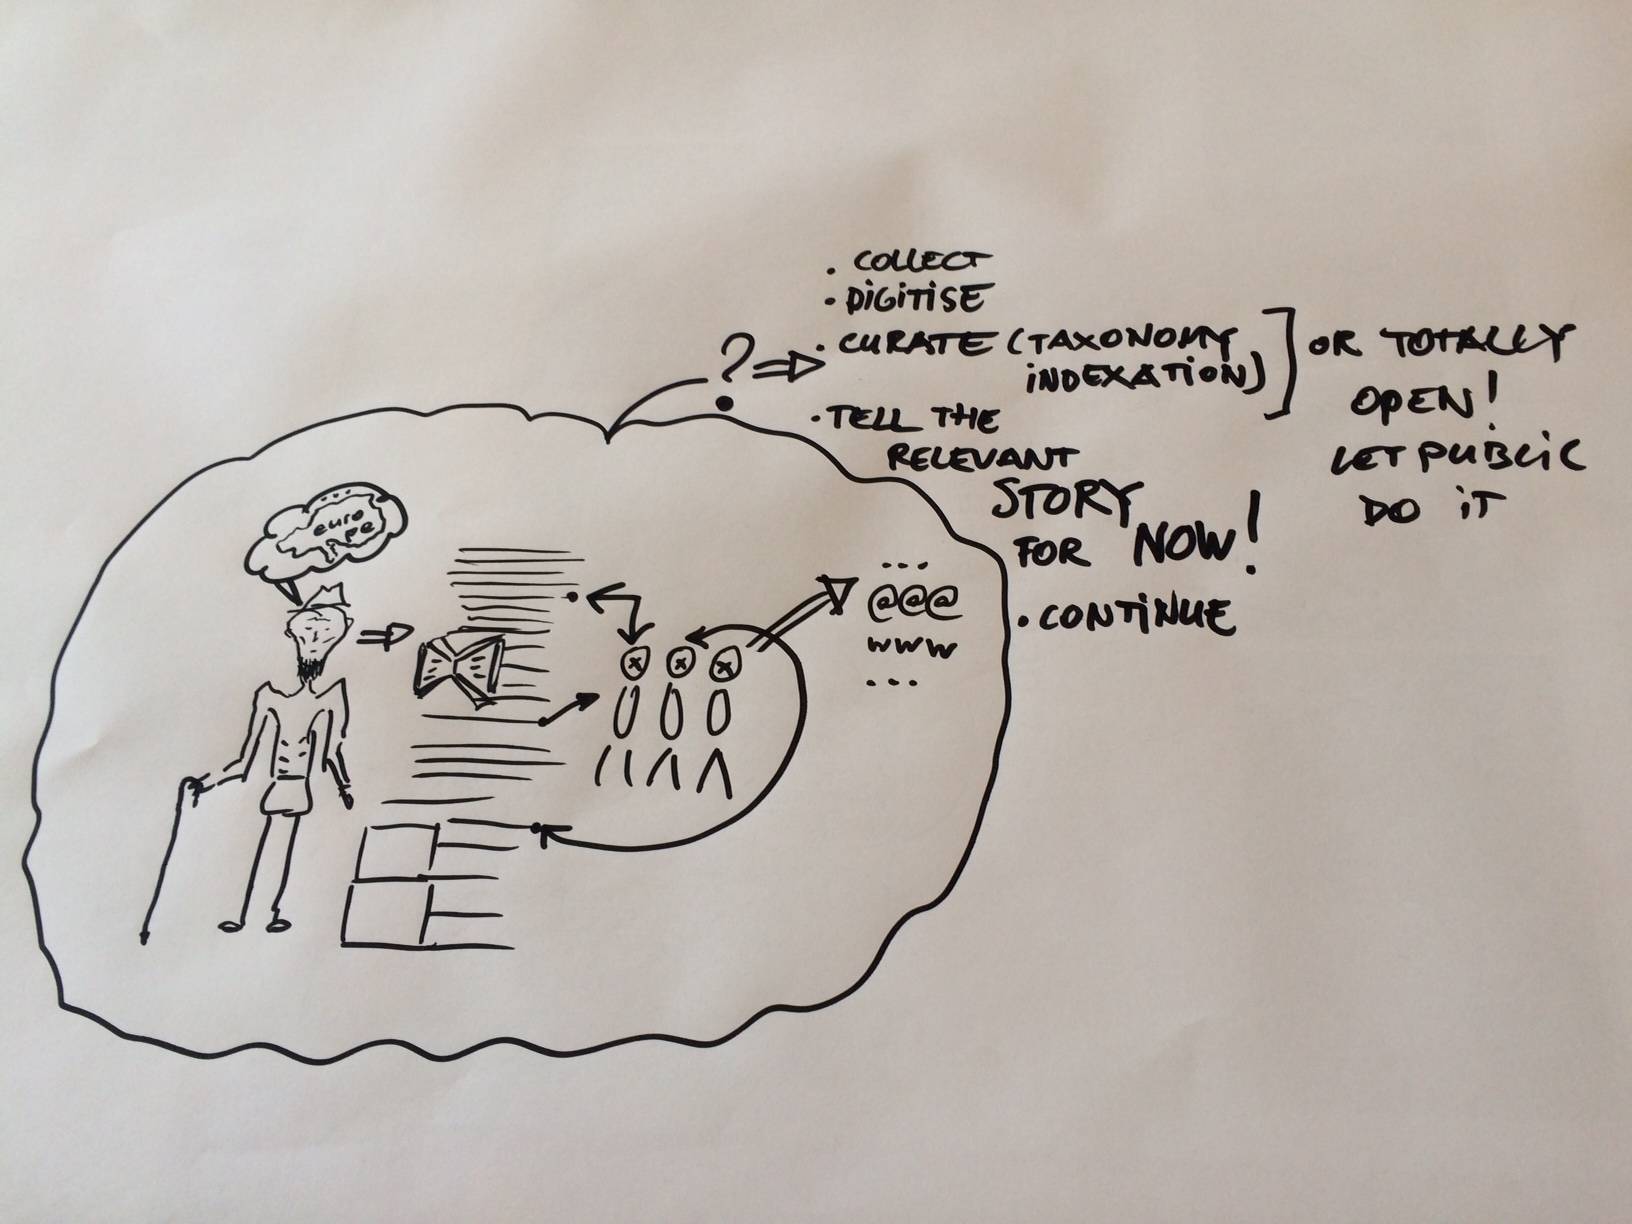 . COLLECT
. DIGITISE
?
. CURATE (TAXONOMY
INDEXATION)
OR TOTALLY
OPEN!
LET PUBLIC
DO IT
. TELL THE
RELEVANT
STORY
FOR NOW!
. CONTINUE
euro
pe
...
@@@
www
...